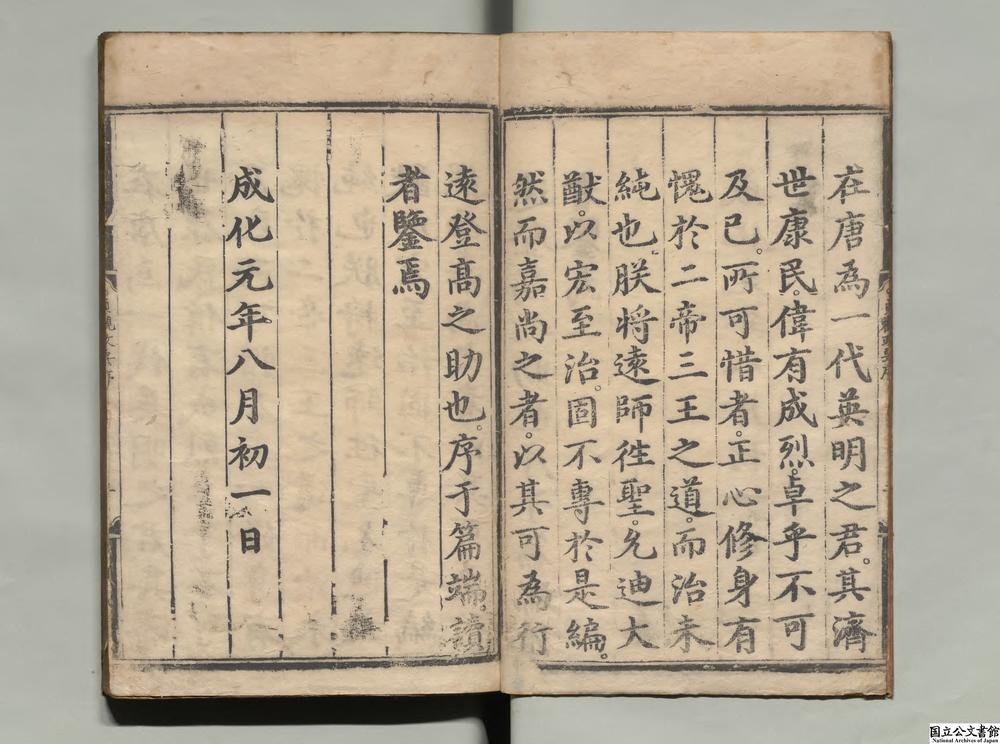 在唐為一代英明之君其濟
世康民偉有成烈卓乎不可
及已所可惜者正心修身有
愧於二帝三王之道而治未
純也朕將遠師徃聖允迪大
猷以宏至治固不專於是編
然而嘉尚之者以其可為行
遠登髙之助也序于篇端讀
者鑒焉
成化元年八月初一日
国立公文書館
National Archives of Japan